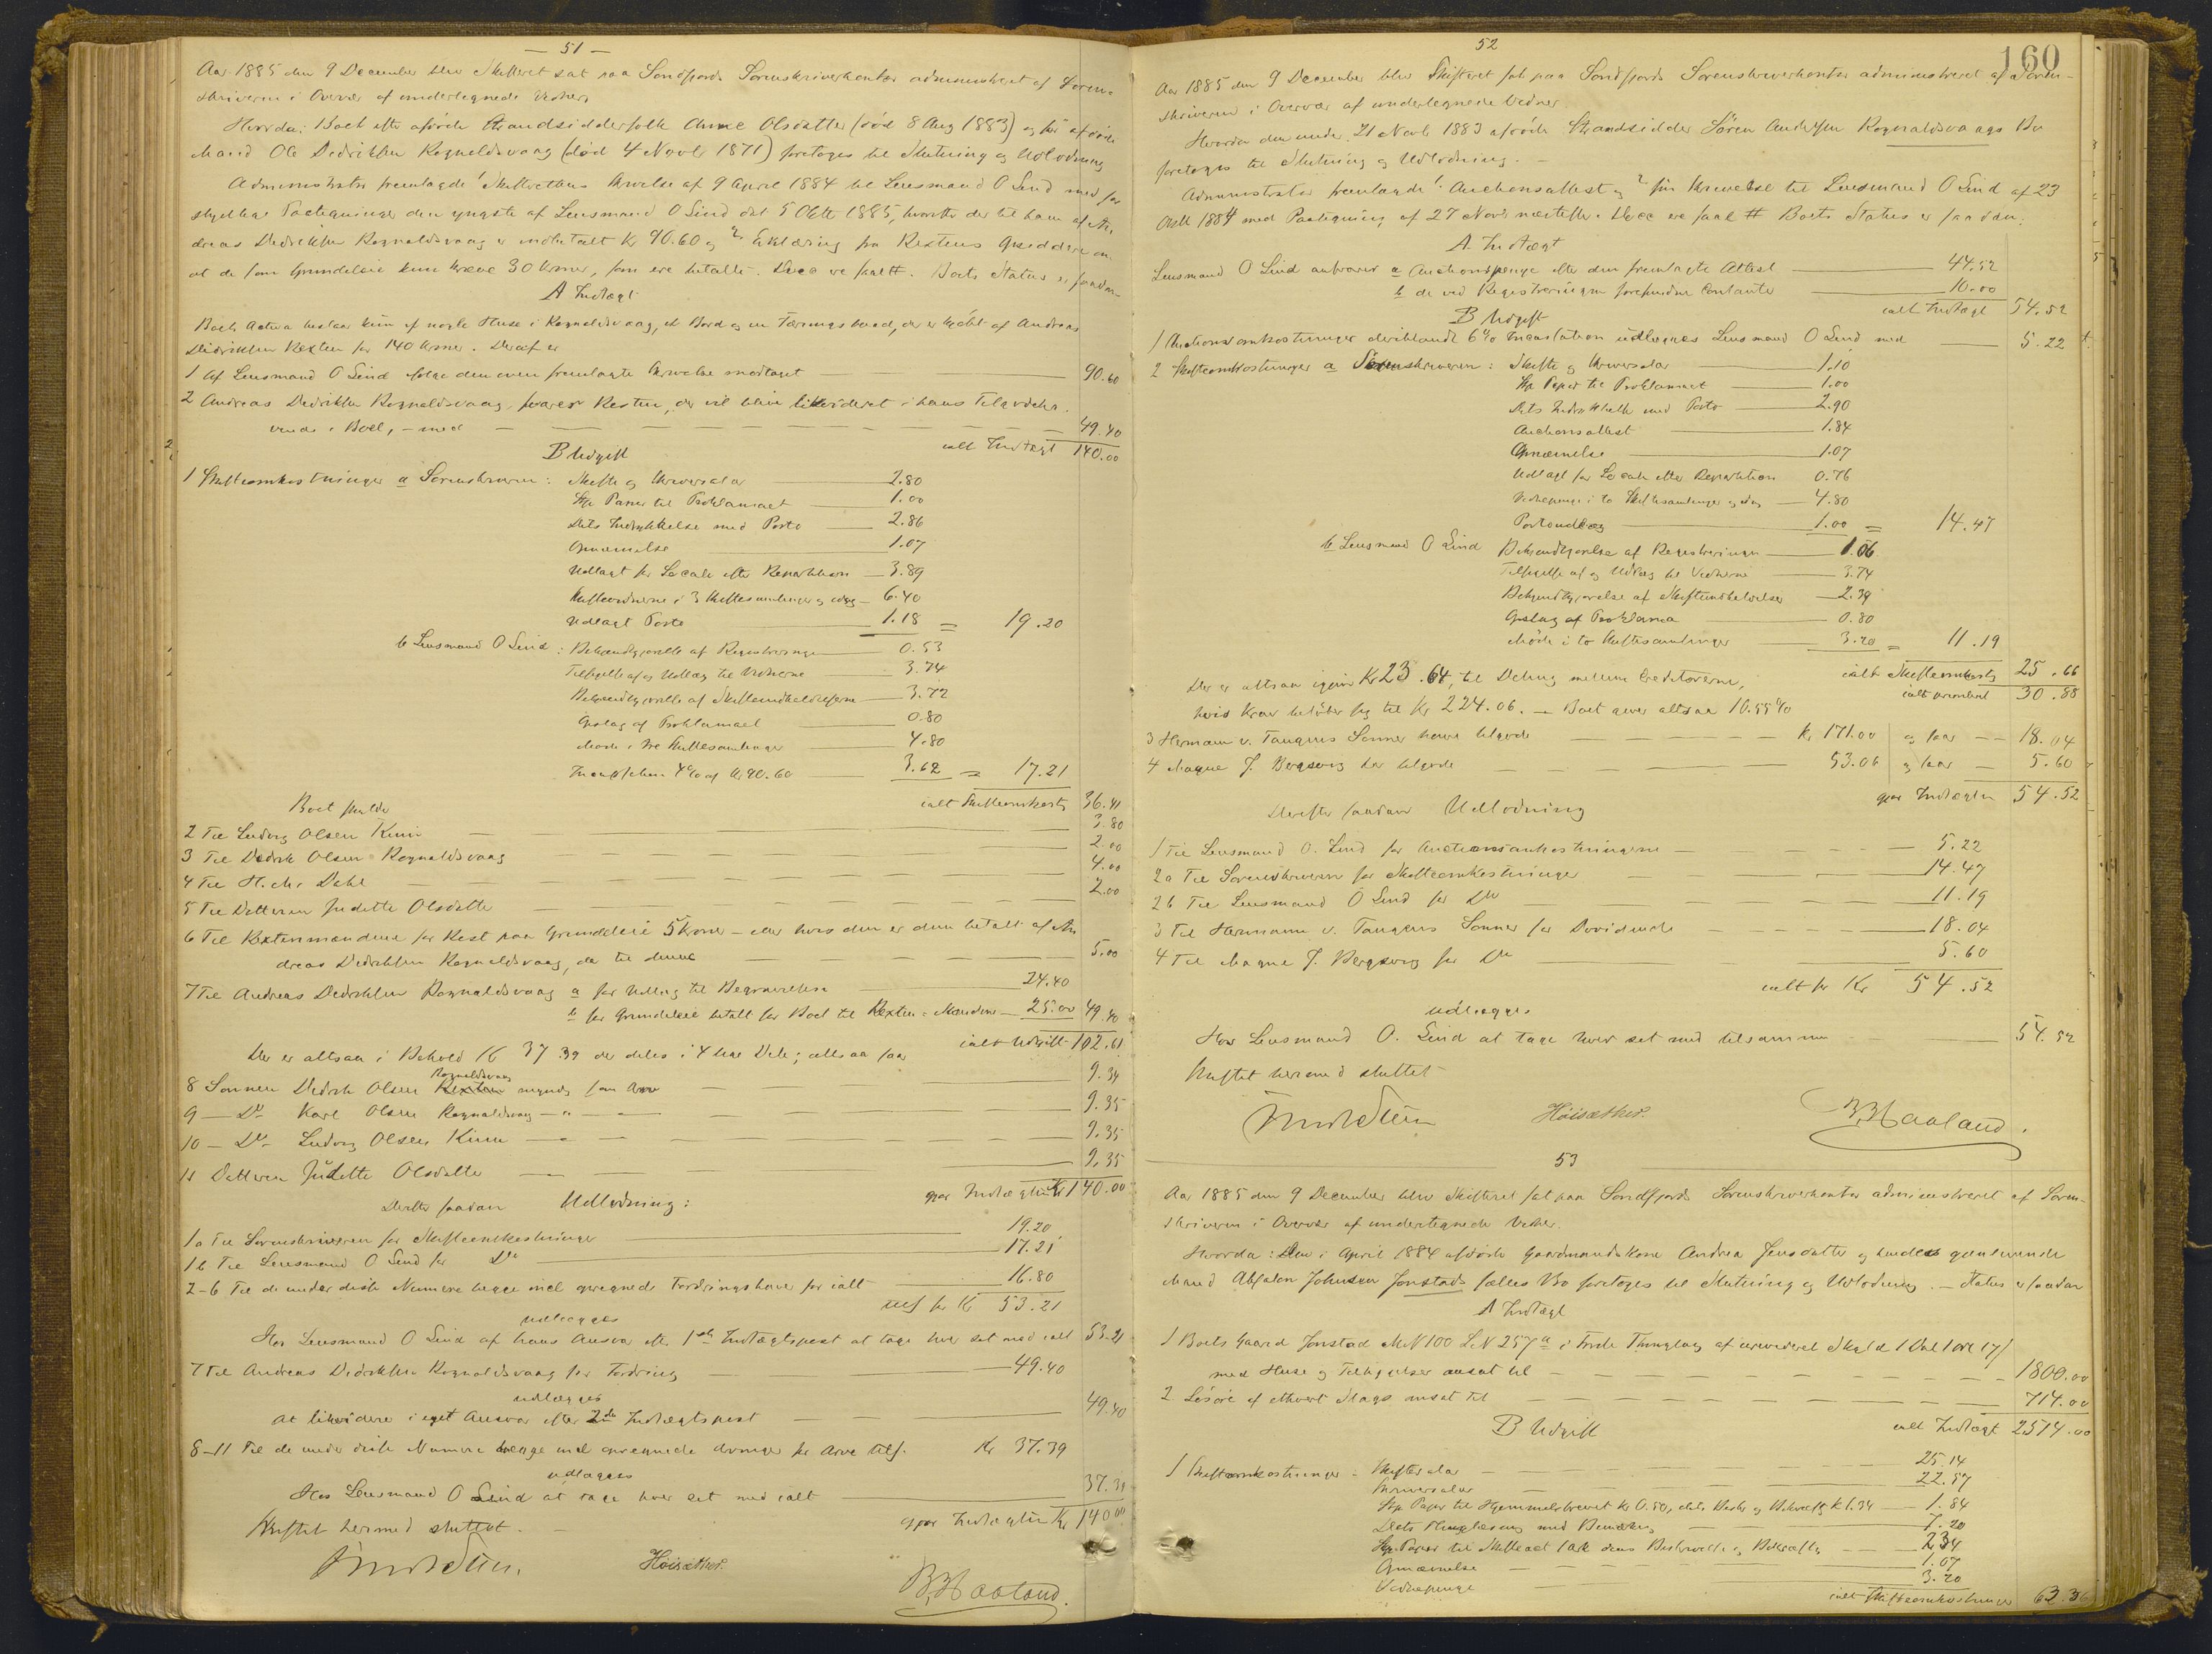 — 51 —
Aar 1885 den 9 December blev Skifteret sat paa Søndfjords Sorenskriverkontor administreret af Soren-
skriveren i Overvær af undertegnede Vidner
Hvorda: Boet efter afdøde Strandsidderfolk Anne Olsdatter (død 8 Aug 1883) og før afdøde
Mand Ole Dedriksen Rognaldsvaag (død 4 Novbr 1871) foretoges til Slutning og Udlodning
Administrator fremlagde 1 Skifterettens Skrivelse af 9 April 1884 til Lensmand O Lind med for
skjellige Paategninger den yngste af Lensmand O Lind dat 5 Oktb 1885, hvorefter der til ham af An-
dreas Dedriksen Rognaldsvaag er indbetalt Kr 90.60 og 2 Erklæring fra Rextens Opsiddere om
at de som Grundeleie kun kræve 30 Kroner, som ere betalte. Boets Status er saadan
A Indtægt
Boets Activa bestaar kun af nogle Huse i Rognaldsvaag, et Bord og en Færingsbaad, der er kjøbt af Andreas
Didriksen Rexten for 140 Kroner. Deraf er
1 Af Lensmand O Lind ifølge den oven fremlagte Skrivelse modtaget 90.60
2 Andreas Dedriksen Rognaldsvaag svarer Resten, der vil blive likvideret i hans Tilgodeha-
vende i Boet, - med 49.40
ialt Indtægt 140.00
B Udgift
1 Skifteomkostninger a Sorenskriveren: Skifte og Skriversalar 2.80
Stp Papir til Proklamaet 1.00
Dets Indrykkelse med Porto 2.86
Opnævnelse 1.07
Udlagt for Locale efter Repartition 3.89
Skiftevidnerne i 3 Skiftesamlinger og idag 6.40
Udlagt Porto 1.18 = 19.20
b Lensmand O Lind: Bekjendtgjørelse af Registreringen 0.53
Tilsigelse af og Udlæg til Vidnerne 3.74
Bekjendtgjørelse af Skifteindkaldelserne 3.72
Opslag af Proklamaet 0.80
Møde i tre Skiftesamlinger 4.80
Incassation 4% af Kr 90.60 3.62 = 17.21
ialt Skifteomkostn 36.41
Boet skylder
2 Til Ludvig Olsen Kinn 3.80
3 Til Dedrik Olsen Rognaldsvaag 2.00
4 Til H. Chr Dahl 4.00
5 Til Datteren Judette Olsdatter 2.00
6 Til Rextenmændene for Rest paa Grundeleie 5 Kroner - eller hvis den er dem betalt af An
dreas Dedriksen Rognaldsvaag, da til denne 5.00
7 Til Andreas Dedriksen Rognaldsvaag a for Udlæg til Begravelsen 24.40
b for Grundeleie betalt for Boet til Rexten-Mændene 25.00 49.40
ialt Udgift 102.61
Der er altsaa i Behold Kr 37.39 der deles i 4 lige Dele; altsaa faar
Rognaldsvaag
8 Sønnen Dedrik Olsen Rexten myndig som Arv 9.34
9 — Do Karl Olsen Rognaldsvaag — " — 9.35
10 — Do Ludvig Olsen Kinn — " — 9.35
11 Datteren Judette Olsdatter 9.35
gjør Indtægten Kr 140.00
Derefter saadan Udlodning:
1a Til Sorenskriveren for Skifteomkostninger 19.20
1b Til Lensmand O Lind for Do 17.21
2-6 Til de under disse Numere begge incl opregnede Fordringshaver for ialt 16.80
tils for Kr 53.21
udlægges
Hos Lensmand O Lind af hans Ansvar efter 1ste Indtægtspost at tage hver sit med ialt 53.21
7 Til Andreas Dedriksen Rognaldsvaag for Fordring 49.40
udlægges
At likvidere i eget Ansvar efter 2den Indtægtspost 49.40
8-11 Til de under disse Numere begge incl opregnede Arvinger for Arv tils. Kr 37.39
udlægges
Hos Lensmand O Lind at tage hver sit med ialt 37.39
gjør Indtægten Kr 140.00
Skiftet hermed sluttet.
Høisæther.
B. Haaland.
52
160
Aar 1885 den 9 December blev Skifteret sat paa Søndfjords Sorenskriverkontor administreret af Soren-
skriveren i Overvær af undertegnede Vidner
Hvorda den under 21 Novb 1883 afdøde Strandsidder Søren Andersen Rognaldsvaags Bo
foretoges til Slutning og Udlodning. —
Administrator fremlagde 1. Auctionsattest og 2 sin Skrivelse til Lensmand O Lind af 23
Oktb 1884 med Paategning af 27 Novb næstefter. Boets Status er saadan:
A. Indtægt
Lensmand O Lind ansvarer a Auctionspenge efter den fremlagte Attest 44.52
b de ved Registreringen forefundne Contanter 10.00
ialt Indtægt 54.52
B Udgift
1 Auctionsomkostninger deriblandt 6% Incassation udlægges Lensmand O Lind med 5.22
2 Skifteomkostninger a Sorenskriveren: Skifte og Skriversalar 1.10
Stp Papir til Proklamaet 1.00
Dets Indrykkelse med Porto 2.90
Auctionsattest 1.84
Opnævnelse 1.07
Udlagt for Locale efter Repartition 0.76
Vidnepenge i to Skiftesamlinger og idag 4.80
Portoudlæg 1.00 = 14.47
b Lensmand O Lind Bekjendtgjørelse af Registreringen 1.06
Tilsigelse af og Udlæg til Vidnerne 3.74
Bekjendtgjørelse af Skifteindkaldelser 2.39
Opslag af Proklama 0.80
Møde i to Skiftesamlinger 3.20 = 11.19
ialt Skifteomkostn 25.66
ialt prioritert 30.88
Der er altsaa igjen Kr 23.64, til Deling mellem Creditorerne,
hvis Krav beløber sig til Kr 224.06. — Boet giver altsaa 10.55%
3 Hermann v. Tangens Sønner have tilgode Kr 171.00 og faar 18.04
4 Magne J. Bergsvig har tilgode 53.06 og faar 5.60
gjør Indtægten 54.52
Derefter saadan Udlodning
1 Til Lensmand O. Lind for Auctionsomkostningerne 5.22
2a Til Sorenskriveren for Skifteomkostninger 14.47
2b Til Lensmand O Lind for Do 11.19
3 Til Hermann v. Tangens Sønner for Dividende 18.04
4 Til Magne J. Bergsvig for Do 5.60
ialt for Kr 54.52
udlægges
Hos Lensmand O. Lind at tage hver sit med tilsammen 54.52
Skiftet hermed sluttet
Høisæther.
B. Haaland.
53
Aar 1885 den 9 December blev Skifteret sat paa Søndfjords Sorenskriverkontor administreret af Soren-
skriveren i Overvær af undertegnede Vidner.
Hvorda: Den i April 1884 afdøde Gaardmandskone Andrea Jensdatter og hendes gjenlevende
Mand Absalon Johnsen Jonstads fælles Bo foretoges til Slutning og Udlodning. — Status er saadan
A Indtægt
1 Boets Gaard Jonstad M.N 100 L.N 257a i Førde Thinglag af urevideret Skyld
med Huse og Tilbehør ansat til 1800.00
2. Løsøre af ethvert Slags ansat til 714.00
ialt Indtægt 2514.00
B Udgift
1 Skifteomkostninger: Skiftesalar 25.14
Skriversalar 22.57
Stp Papir til Hjemmelsbrevet Kr 0.50, dets Beskr og Bekræft Kr 1.34 1.84
Dets Thinglæsning med Bemærkn 7.20
Stp. Papir til Skifteact 1 Ark dens Beskrivelse og Bekræftn 2.34
Opnævnelse 1.07
Vidnepenge 3.20
ialt Skifteomkostninger 63.36